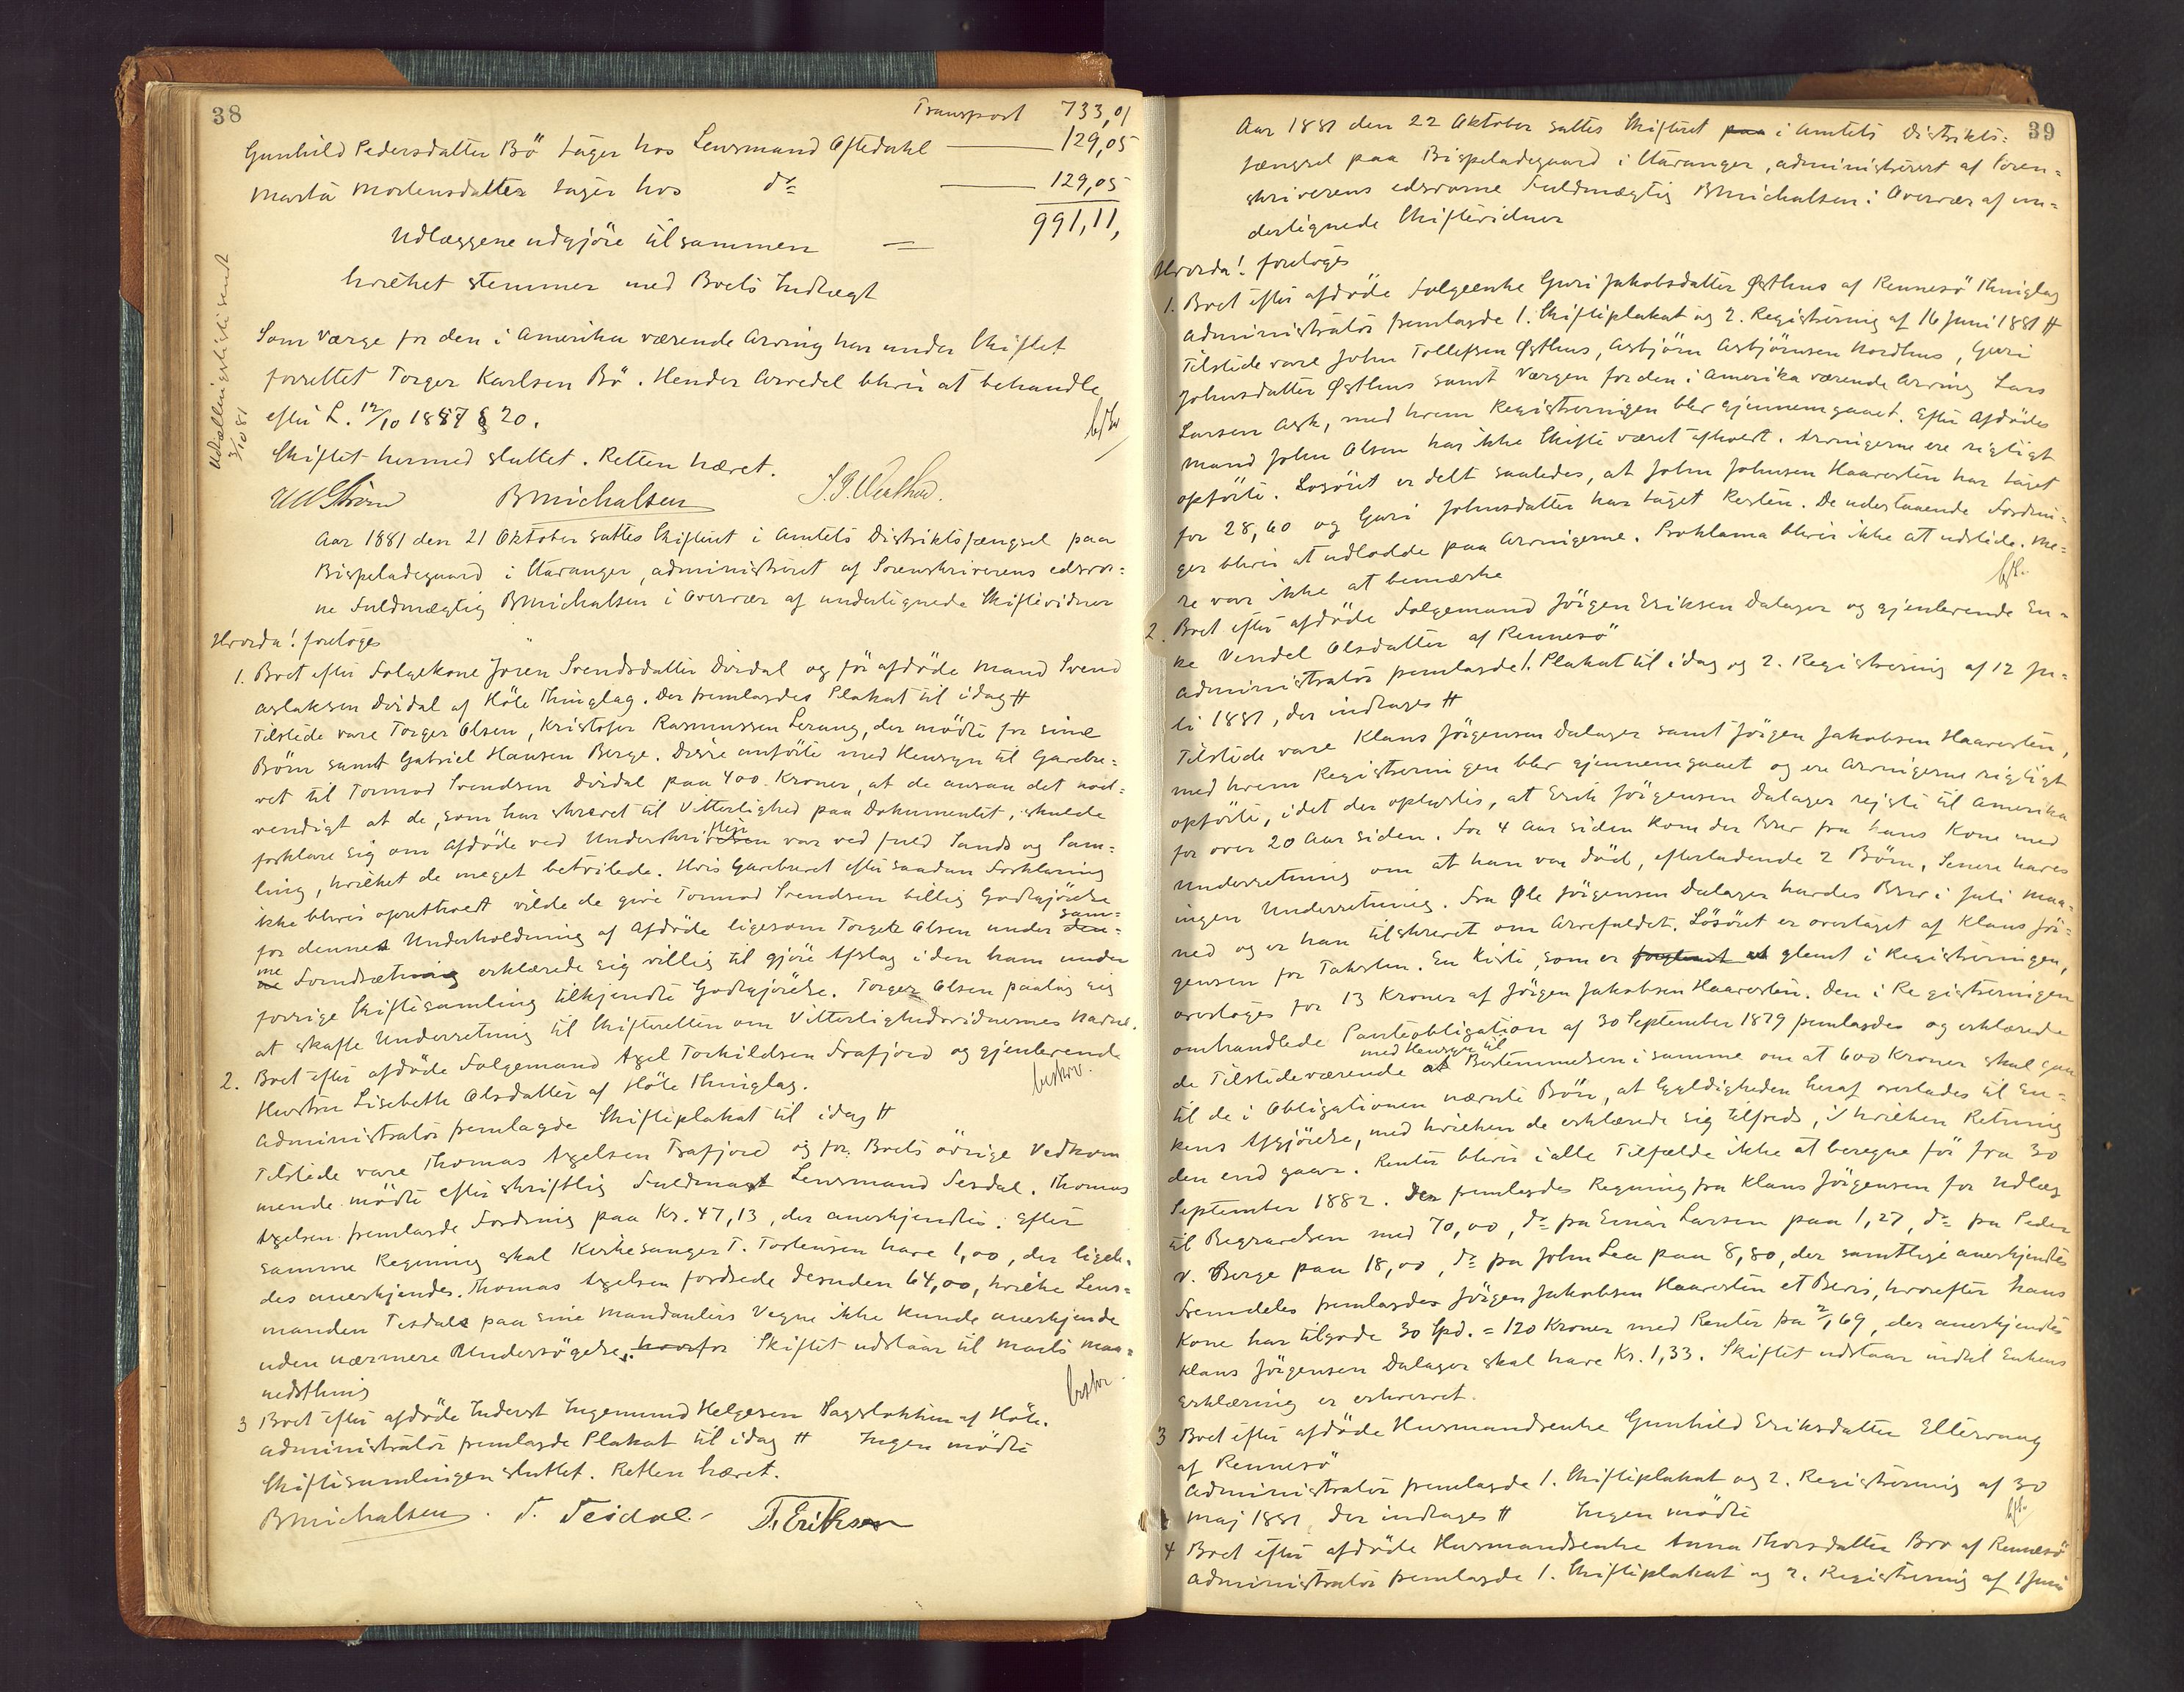 38
Transport 733,01
Gunhild Pedersdatter Bö tager hos Lensmand Oftedahl — 129,05
Marta Mortensdatter tager hos do — 129,05
Udlæggene udgjöre tilsammen — 991,11,
hvilket stemmer med Boets Indtægt
Som Værge for den i Amerika værende Arving har under Skiftet
forrettet Torger Karlsen Bö. Hendes Arvedel bliver at behandle
efter L. 12/10 1857 § 20.
Skiftet hermed sluttet. Retten hævet.
BMichalsen
Aar 1881 den 21 Oktober sattes Skifteret i Amtets Distriktsfængsel paa
Bispeladegaard i Stavanger, administreret af Sorenskriverens edsvor-
ne Fuldmægtig BMichalsen i Overvær af undertegnede Skiftevidner
Hvorda! foretoges
1. Boet efter Folgekone Joren Svendsdatter Dirdal og för afdöde Mand Svend
Aslaksen Dirdal af Höle Thinglag. Der fremlagdes Plakat til idag #
Tilstede vare Torger Olsen, Kristofer Rasmussen Lerang, der mödte for sine
Börn samt Gabriel Hansen Berge. Disse anförte med Hensyn til Gavebre-
vet til Tormod Svendsen Dirdal paa 400 Kroner, at de ansaa det nöd-
vendigt at de, som har skrevet til Vitterlighed paa Dokumentet, skulde
forklare sig om Afdöde ved Underskriften var ved fuld Sands og Sam-
ling, hvilket de meget betvilede. Hvis Gavebrevet efter saadan Forklaring
ikke bliver opretholdt vilde de give Tormod Svendsen billig Godtgjörelse
for dennes Underholdning af Afdöde ligesom Torger Olsen under sam-
me Forudsætning erklærede sig villig til gjöre Afslag i den ham under
forrige Skiftesamling tilkjendte Godtgjörelse. Torger Olsen paalag sig
at skaffe Underretning til Skifteretten om Vitterlighedsvidnernes Navne.
beskrv.
2. Boet efter afdöde Folgemand Axel Torkildsen Frafjord og gjenlevende
Hustru Lisebeth Olsdatter af Höle Thinglag.
Administrator fremlagde Skifteplakat til idag #
Tilstede vare Thomas Axelsen Frafjord og for Boets övrige Vedkom
mende mödte efter skriftlig Fuldmagt Lensmand Tesdal. Thomas
Axelsen fremlagde Fordring paa Kr. 47,13, der anerkjendtes. Efter
samme Regning skal Kirkesanger T. Torlensen have 1,00, der ligele-
des anerkjendes. Thomas Axelsen fordrede desuden 64,00, hvilke Lens-
manden Tesdal paa sine Mandanters Vegne ikke kunde anerkjende
uden nærmere Undersögelse, hvorfor Skiftet udstaar til Marts Maa-
nedsthing
3 Boet efter afdöde Inderst Ingemund Helgesen Hagslökken af Höle.
Administrator fremlagde Plakat til idag # Ingen mödte
Skiftesamlingen sluttet. Retten hævet.
BMichalsen. T. Tesdal. T. Eriksen
39
Aar 1881 den 22 Oktober sattes Skifteret paa i Amtets Distrikts-
fængsel paa Bispeladegaard i Stavanger, administreret af Soren-
skriverens edsvorne Fuldmægtig BMichalsen i Overvær af un-
dertegnede Skiftevidner
Hvorda! foretoges
1. Boet efter afdöde Folgeenke Guri Jakobsdatter Østhus af Rennesö Thinglag
Administrator fremlagde 1. Skifteplakat og 2. Registrering af 16 Juni 1881 #
Tilstede vare John Tollefsen Østhus, Asbjörn Asbjörnsen Nordhus, Guri
Johnsdatter Østhus samt Værgen for den i Amerika værende Arving Lars
Larsen Ask, med hvem Registreringen blev gjennemgaaet. Efter Afdödes
Mand John Olsen har ikke Skifte været afholdt. Arvingerne ere rigtigt
opförte. Lösöret er delt saaledes, at John Johnsen Haavesten har taget
for 28,60 og Guri Johnsdatter har taget Resten. De udestaaende Fordrin-
ger bliver at udlodde paa Arvingerne. Proklama bliver ikke at udstede. Me-
re var ikke at bemærke
2. Boet efter afdöde Folgemand Jörgen Eriksen Dalager og gjenlevende En-
ke Vendel Olsdatter af Rennesö
Administrator fremlagde 1. Plakat til idag og 2. Registrering af 12 Ju-
li 1881, der indtages #
Tilstede vare Klaus Jörgensen Dalager samt Jörgen Jakobsen Haavesten,
med hvem Registreringen blev gjennemgaaet og ere Arvingerne rigtigt
opförte, idet der oplystes, at Erik Jörgensen Dalager rejste til Amerika
for over 20 Aar siden. For 4 Aar siden kom der Brev fra hans Kone med
Underretning om at han var död, efterladende 2 Börn. Senere haves
ingen Underretning. Fra Ole Jörgensen Dalager havdes Brev i Juli Maa-
ned og er han tilskrevet om Arvefaldet. Lösöret er overtaget af Klaus Jör-
gensen for Taksten. En Kiste, som er forglemt at glemt i Registreringen,
overtoges for 13 Kroner af Jörgen Jakobsen Haavesten. Den i Registreringen
omhandlede Panteobligation af 30 September 1879 fremlagdes og erklærede
de Tilstedeværende med Hensyn til Bestemmelsen i samme om at 600 Kroner skal gaa
til de i Obligationen nævnte Börn, at Gyldigheden heraf overlades til En-
kens Afgjörelse, med hvilken de erklærede sig tilfreds, i hvilken Retning
den end gaar. Renter bliver i alle Tilfælde ikke at beregne för fra 30
September 1882. Der fremlagdes Regning fra Klaus Jörgensen for Udlæg
til Begravelsen med 70,00, do fra Einar Larsen paa 1,27, do fra Peder
V. Berge paa 18,00, do fra John Lea paa 8,80, der samtlige anerkjendtes
Fremdeles fremlagdes Jörgen Jakobsen Haavesten et Bevis, hvorefter hans
Kone har tilgode 30 Spd. = 120 Kroner med Renter fra 2/1 69, der anerkjendtes
Klaus Jörgensen Dalager skal have Kr. 1,33. Skiftet udstaar indtil Enkens
Erklæring er erhvervet.
3 Boet efter afdöde Husmandsenke Gunhild Eriksdatter Ellevaag
af Rennesö
Administrator fremlagde 1. Skifteplakat og 2. Registrering af 30
Maj 1881, der indtages # Ingen mödte
4 Boet efter afdöde Husmandsenke Anna Thorsdatter Bro af Rennesö
Administrator fremlagde 1. Skifteplakat og 2. Registrering af 1 Juni